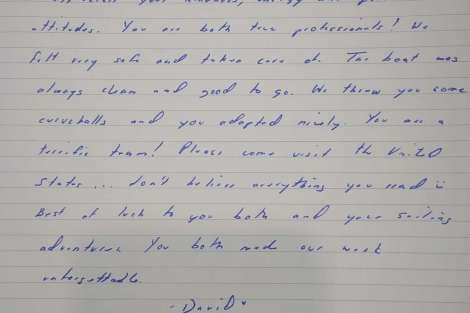 your kindness, energy and
attitudes. You are both true professionals! We
felt very safe and taken care of. The boat was
always clean and good to go. We threw you some
curveballs and you adapted nicely. You are a
terrific team! Please come visit the United
States... don't believe everything you read
Best of luck to you both and your sailing
adventures You both made our week
unforgettable.
- David